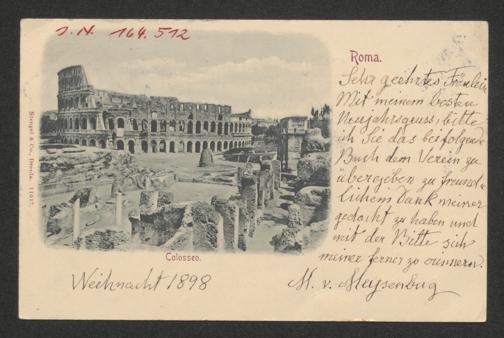 I.N. 164.512
Roma.
Sehr geehrtes Fräulein
Mit meinem besten
Neujahrsgruss, bitte
ich Sie das beifolgende
Buch dem Verein zu
übergeben, zu freund-
lichem Dank meiner
gedacht zu haben und
mit der Bitte sich
meiner ferner zu erinnern.
M. v. Meysenbug
Colosseo.
Weihnacht 1898
Stengel & Co., Dresda. 11017.